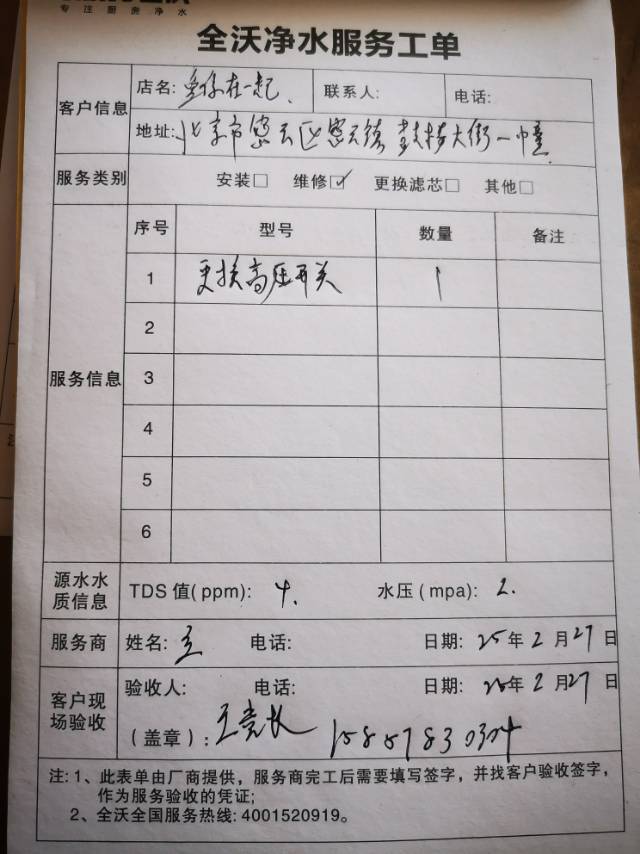 专注厨房净水
全沃净水服务工单
客户信息
店名: 鱼你在一起、 联系人: 电话:
地址: 北京市密云区密云镇鼓楼大街一幢
服务类别 安装□ 维修☑ 更换滤芯□ 其他□
服务信息
序号 型号 数量 备注
1 更换高压开关 1
2
3
4
5
6
源水水质信息 TDS 值(ppm): 4. 水压(mpa): 2.
服务商 姓名: 电话: 日期: 25年2月27日
客户现场验收 验收人: 电话: 日期: 25年2月27日
(盖章):
注: 1、此表单由厂商提供，服务商完工后需要填写签字，并找客户验收签字，
作为服务验收的凭证;
2、全沃全国服务热线: 4001520919。